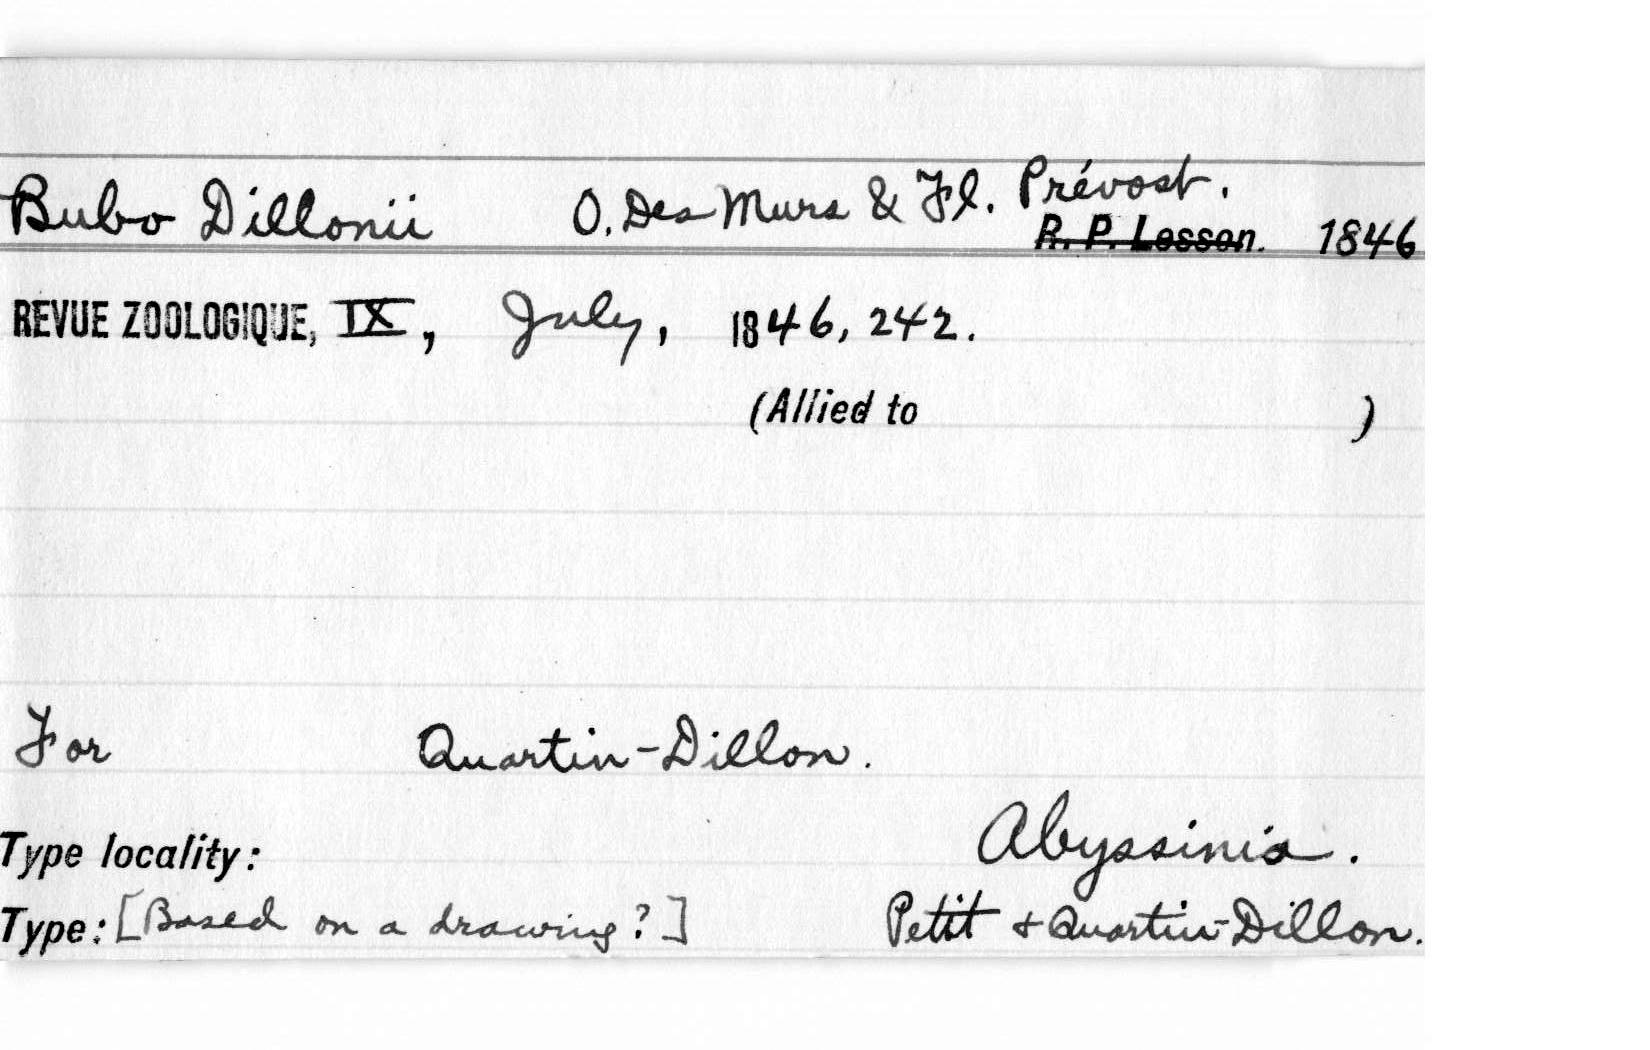 Bubo Dillonii O. Des Murs & Fl. Prévost.
R. P. Lesson. 1846
REVUE ZOOLOGIQUE, IX, July, 1846, 242.
(Allied to )
For Quartin-Dillon.
Type locality: Abyssinia.
Type: [Based on a drawing?] Petit + Quartin-Dillon.